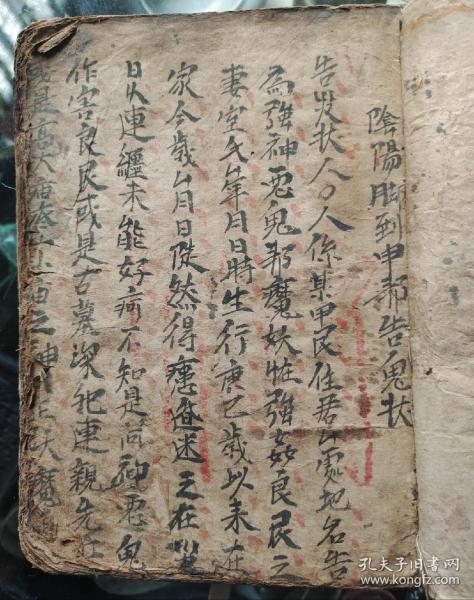 陰陽脚到申都告鬼状
告发状人〇人係某甲民住居厶處地名告
為強神惡鬼邪魔妖怪強姦良民之
妻室厶年月日時生行庚已歲以来在
家今歲厶月日陡然得㾮迷之在
日久連纏未能好病不知是何神惡鬼
作害良民或是古墓深犯連親先亡
或是高大庙之神妖魔
孔夫子旧书网
www.kongfz.com